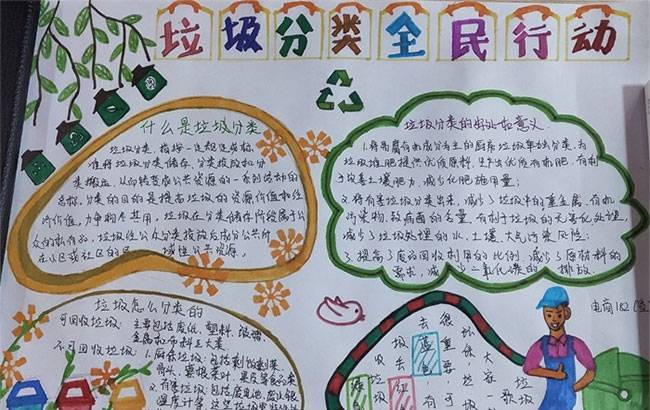 垃圾分类全民行动
什么是垃圾分类
垃圾分类，指按一定规定或标
准将垃圾分类储存、分类投放和分
类搬运，从而转变成公共资源的一系列活动的
总称。分类的目的是提高垃圾的资源价值和经
济价值，力争物尽其用。垃圾在分类储存阶段属于公
众的私有品，垃圾经公众分类投放后成为公众所
在小区或社区的区域性公共资源。
垃圾分类的好处和意义
1.将易腐有机成分为主的厨房垃圾单独分类，为
垃圾堆肥提供优质原料，生产出优质有机肥，有利
于改善土壤肥力，减少化肥施用量；
2.将有害垃圾分类出来，减少了垃圾中的重金属、有机
污染物、致病菌的含量，有利于垃圾的无害化处理，
减少了垃圾处理的水、土壤、大气污染风险；
3.提高了废品回收利用的比例，减少了原材料的
需求，减少二氧化碳的排放。
垃圾怎么分类的
可回收垃圾：主要包括废纸、塑料、玻璃、
金属和布料五大类
不可回收垃圾：1.厨余垃圾：包括剩菜剩饭、
骨头、菜根菜叶、果皮等食品类
2.有害垃圾：包括废电池、废日光
电商182